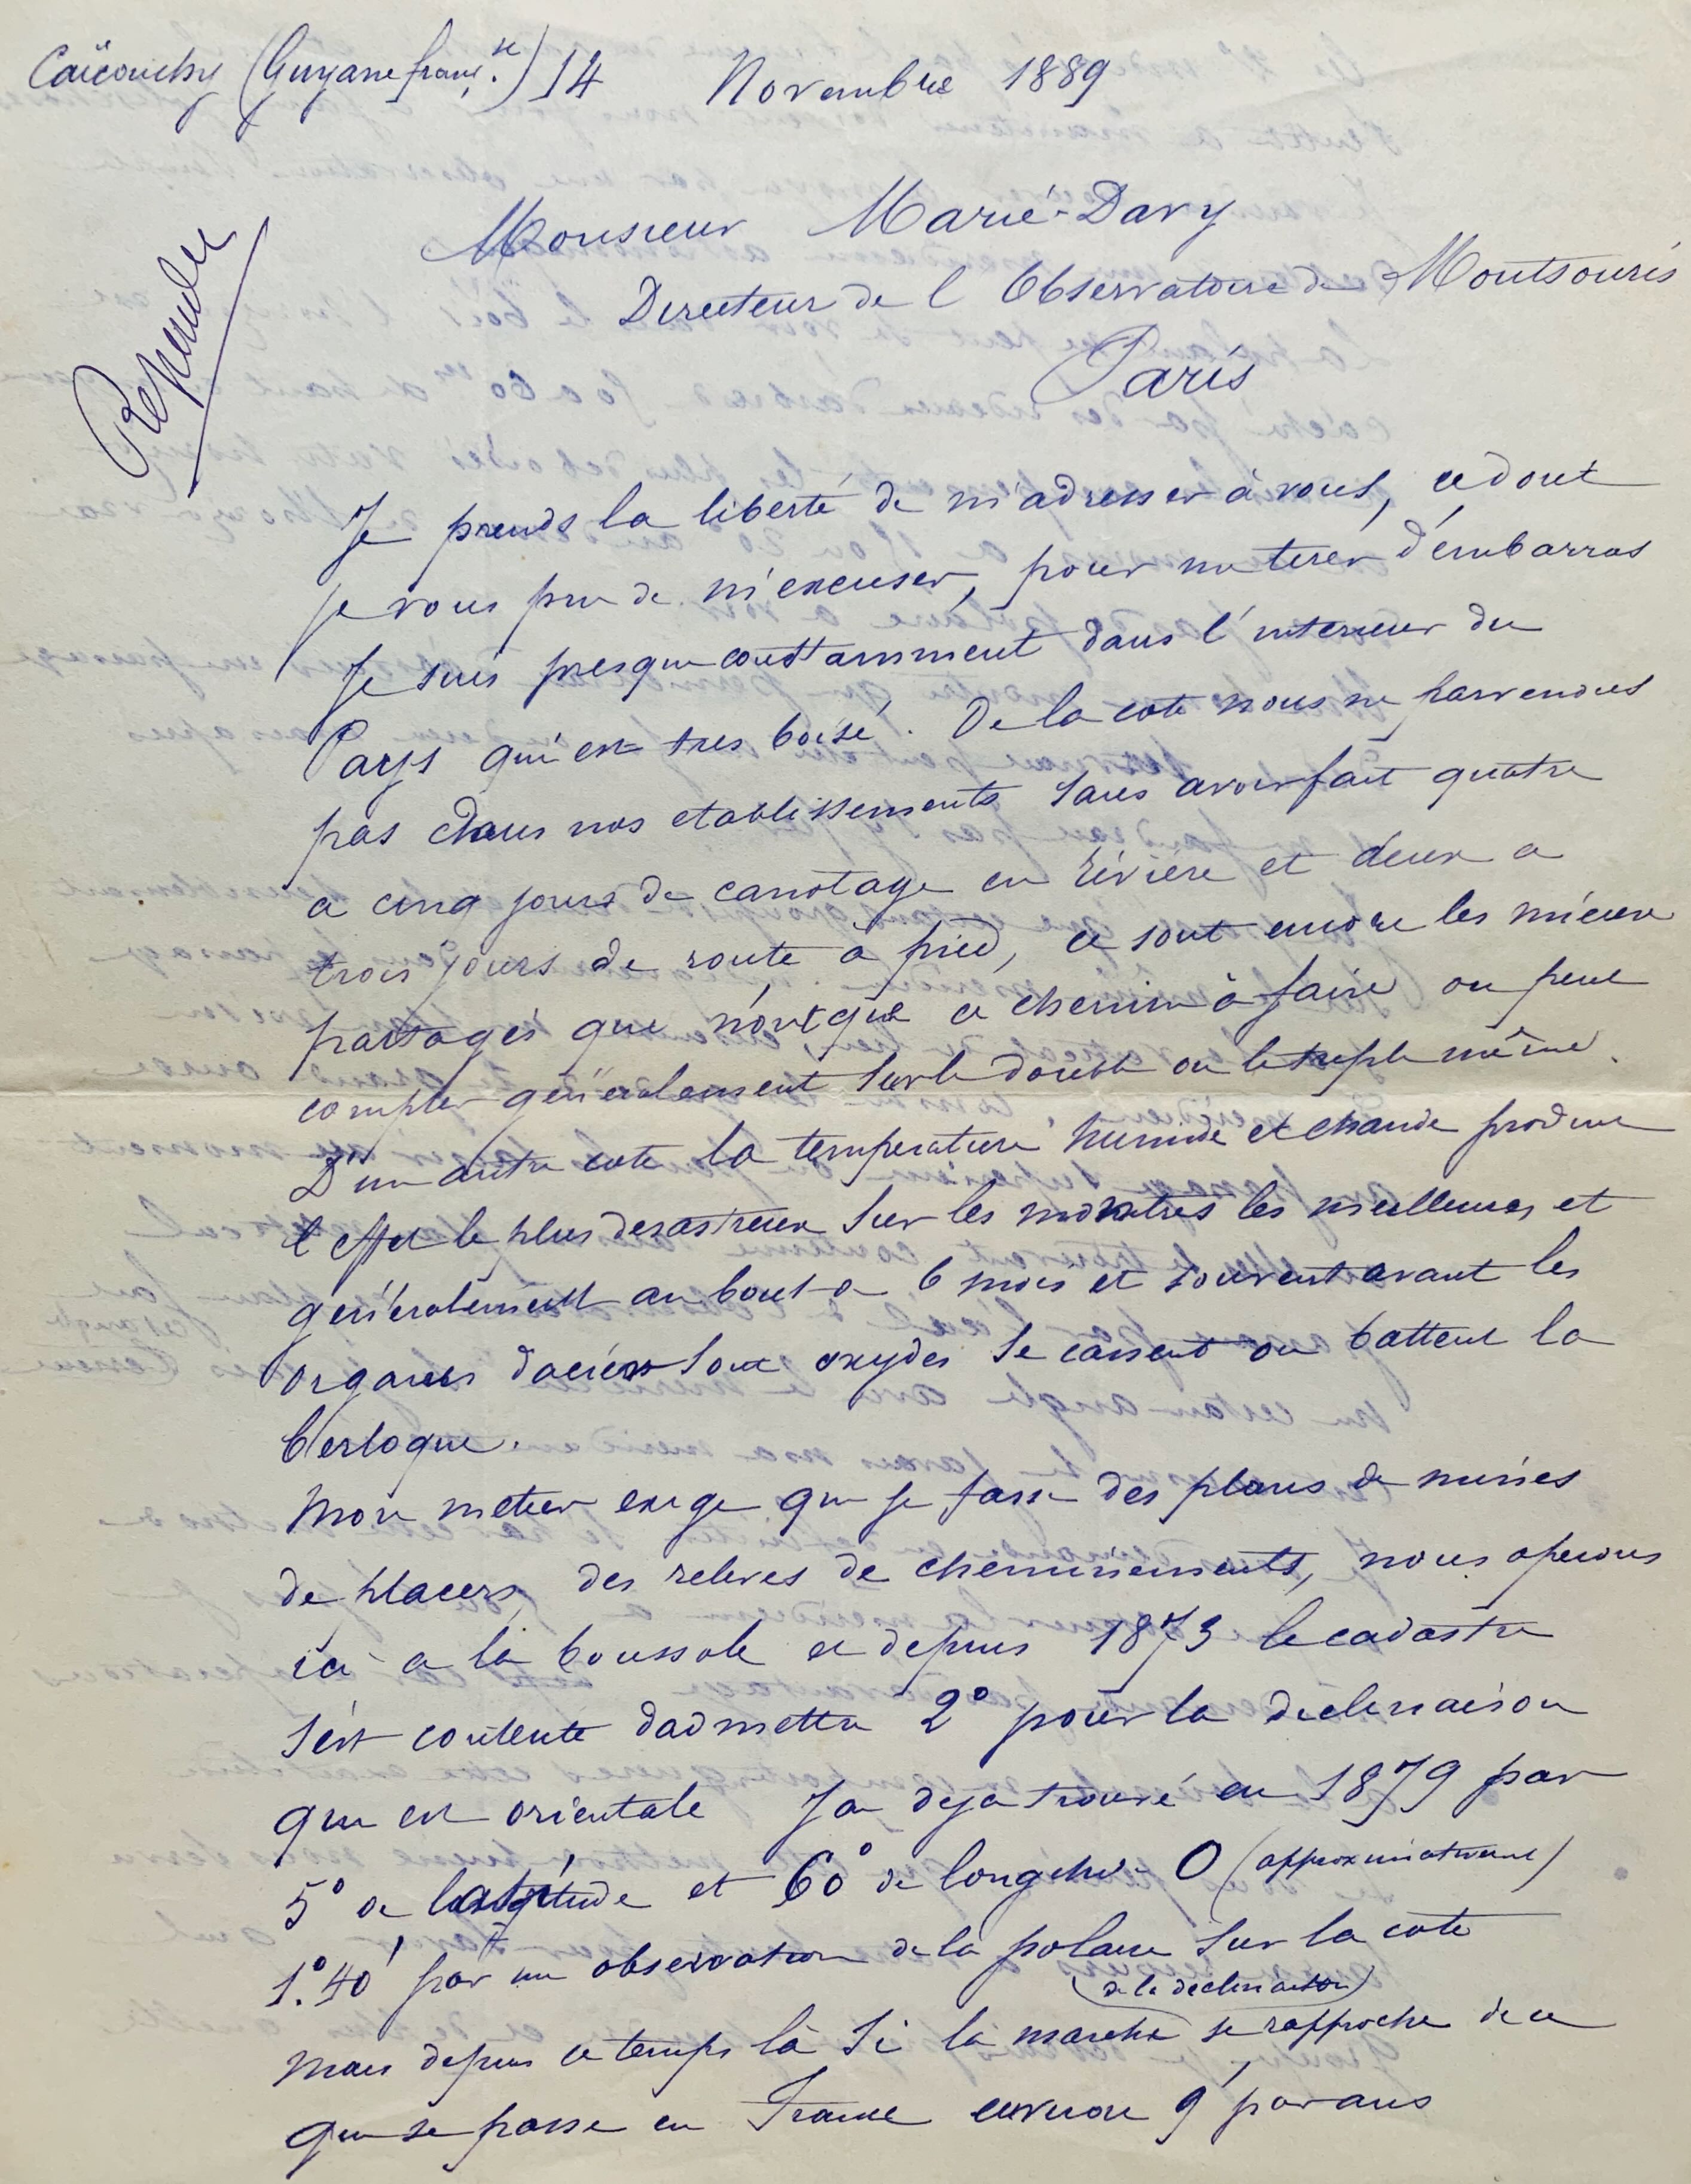 Caïcouchy (Guyane franç.se) 14 Novembre 1889
Monsieur Marié-Davy
Directeur de l Observatoire de Montsouris
Paris
Je prends la liberté de m'adresser à vous, ce dont
je vous prie de m'excuser, pour me tirer d'embarras
Je suis presque constamment dans l'interieur du
Pays qui est tres boisé. De la cote nous ne parvenons
pas dans nos etablissements sans avoir fait quatre
a cinq jours de canotage en rivière et deux a
trois jours de route à pied, ce sont encore les mieux
partagés qui n'ont que ce chemin à faire on peut
compter généralement sur le double ou le triple même.
D'un autre cote la temperature humide et chaude produit
l effet le plus desastreux sur les montres les meilleures et
généralement au bout de 6 mois et souvent avant les
organes d'aciers sont oxydés se cassent ou battent la
berloque.
Mon metier exige que je fasse des plans de mines
de placers, des releves de cheminements, nous operons
ici a la boussole et depuis 1873 le cadastre
s'est contente dadmettre 2° pour la declinaison
qui est orientale J'ai deja trouvé en 1879 par
5° de latitude et 60° de longitude O (approximativement)
1°.40' par une observation de la polaire sur la cote
(de la declinaison)
mais depuis ce temps là si la marche se rapproche de ce
qui se passe en France environ 9' par ans